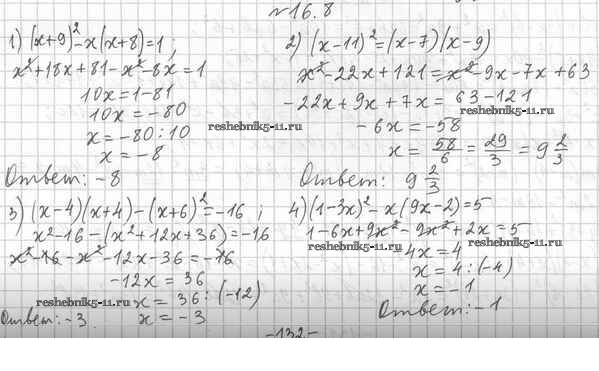 №16.8
1) (x+9)²-x(x+8)=1;
x²+18x+81-x²-8x=1
10x=1-81
10x=-80
x=-80:10
x=-8
Ответ: -8
2) (x-11)²=(x-7)(x-9)
x²-22x+121=x²-9x-7x+63
-22x+9x+7x=63-121
-6x=-58
x=58/6=29/3=9 2/3
Ответ: 9 2/3
3) (x-4)(x+4)-(x+6)²=-16;
x²-16-(x²+12x+36)=-16
x²-16-x²-12x-36=-16
-12x=36
x=36:(-12)
x=-3
Ответ: -3.
4) (1-3x)²-x(9x-2)=5
1-6x+9x²-9x²+2x=5
-4x=4
x=4:(-4)
x=-1
Ответ: -1
-132-
reshebnik5-11.ru
reshebnik5-11.ru
reshebnik5-11.ru
reshebnik5-11.ru
reshebnik5-11.ru